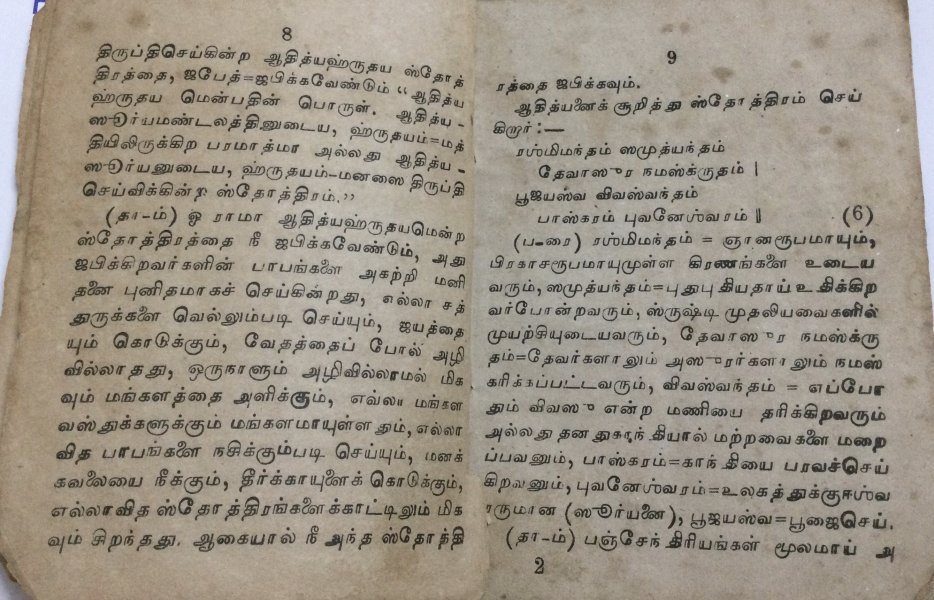 8
திருப்திசெய்கின்ற ஆதித்யஹ்ருதய ஸ்தோத்
திரத்தை, ஜபேத்=ஜபிக்கவேண்டும் “ஆதித்ய
ஹ்ருதய மென்பதின் பொருள். ஆதித்ய -
ஸூர்யமண்டலத்தினுடைய, ஹ்ருதயம்=மத்
தியிலிருக்கிற பரமாத்மா அல்லது ஆதித்ய -
ஸூர்யனுடைய, ஹ்ருதயம்-மனஸை திருப்தி
செய்விக்கின்ற ஸ்தோத்திரம்.”
(தா-ம்) ஓ ராமா ஆதித்யஹ்ருதயமென்ற
ஸ்தோத்திரத்தை நீ ஜபிக்கவேண்டும், அது
ஜபிக்கிறவர்களின் பாபங்களை அகற்றி மனி
தனை புனிதமாகச் செய்கின்றது, எல்லா சத்
துருக்களை வெல்லும்படி செய்யும், ஜயத்தை
யும் கொடுக்கும், வேதத்தைப் போல் அழி
வில்லாதது, ஒருநாளும் அழிவில்லாமல் மிக
வும் மங்களத்தை அளிக்கும், எவ்லா மங்கள
வஸ்துக்களுக்கும் மங்களமாயுள்ளதும், எல்லா
வித பாபங்களை நசிக்கும்படி செய்யும், மனக்
கவலையை நீக்கும், தீர்க்காயுளைக் கொடுக்கும்,
எல்லாவித ஸ்தோத்திரங்களைக்காட்டிலும் மிக
வும் சிறந்தது. ஆகையால் நீ அந்த ஸ்தோத்தி
9
ரத்தை ஜபிக்கவும்.
ஆதித்யனைக் குறித்து ஸ்தோத்திரம் செய்
கிறார்:—
ரஶ்மிமந்தம் ஸமுத்யந்தம்
தேவாஸுர நமஸ்க்ருதம் |
பூஜயஸ்வ விவஸ்வந்தம்
பாஸ்கரம் புவனேஶ்வரம் || (6)
(ப-ரை) ரஶ்மிமந்தம் = ஞானரூபமாயும்,
பிரகாசரூபமாயுமுள்ள கிரணங்களை உடைய
வரும், ஸமுத்யந்தம்=புதுபுதியதாய் உதிக்கிற
வர்போன்றவரும், ஸ்ருஷ்டி முதலியவைகளில்
முயற்சியுடையவரும், தேவாஸுர நமஸ்க்ரு
தம்=தேவர்களாலும் அஸுரர்களாலும் நமஸ்
கரிக்கப்பட்டவரும், விவஸ்வந்தம் = எப்போ
தும் விவஸு என்ற மணியை தரிக்கிறவரும்
அல்லது தனதுகாந்தியால் மற்றவைகளை மறை
ப்பவனும், பாஸ்கரம்=காந்தியை பரவச்செய்
கிறவனும், புவனேஶ்வரம்=உலகத்துக்குஈஶ்வ
ரருமான (ஸூர்யனை), பூஜயஸ்வ=பூஜைசெய்.
(தா-ம்) பஞ்சேந்திரியங்கள் மூலமாய் அ
2